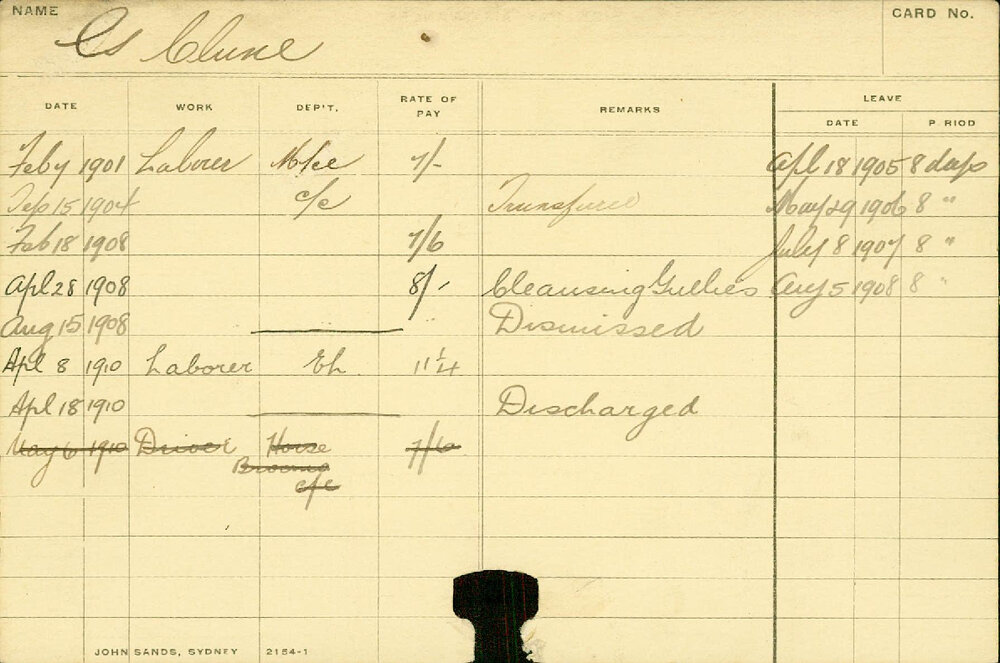 NAME
CARD No.
Cs Clune
DATE WORK DEP'T. RATE OF PAY REMARKS LEAVE
DATE P RIOD
Feby 1901 Laborer 7/- Apl 18 1905 8 days
Sep 15 1904 c/c Transfured May 29 1906 8 "
Feb 18 1908 7/6 July 8 1907 8 "
Apl 28 1908 8/- Cleansing Gullies Aug 5 1908 8 "
Aug 15 1908 Dismissed
Apl 8 1910 Laborer Eh. 11 1/4
Apl 18 1910 Discharged
May 6 1910 Driver Horse 7/6
c/c
JOHN SANDS, SYDNEY 2154-1